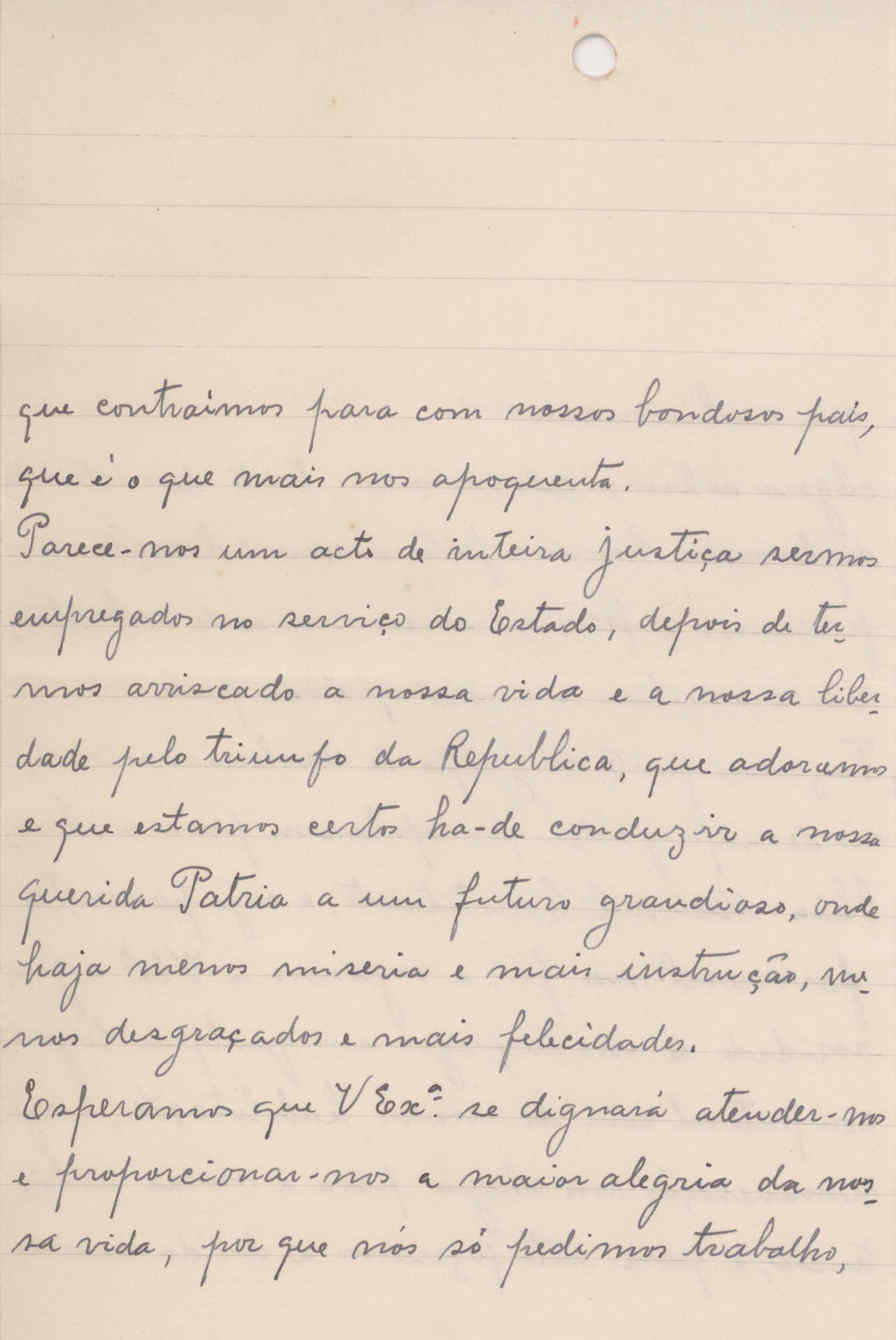 que contraímos para com nossos bondosos pais,
que é o que mais nos apoquenta.
Parece-nos um acto de inteira justiça sermos
empregados no serviço do Estado, depois de ter-
mos arriscado a nossa vida e a nossa liber-
dade pelo triunfo da Republica, que adoramos
e que estamos certos ha-de conduzir a nossa
querida Patria a um futuro grandioso, onde
haja menos miseria e mais instrução, me-
nos desgraçados e mais felecidades.
Esperamos que V Exª. se dignará atender-nos
e proporcionar-nos a maior alegria da nos-
sa vida, por que nós só pedimos trabalho,